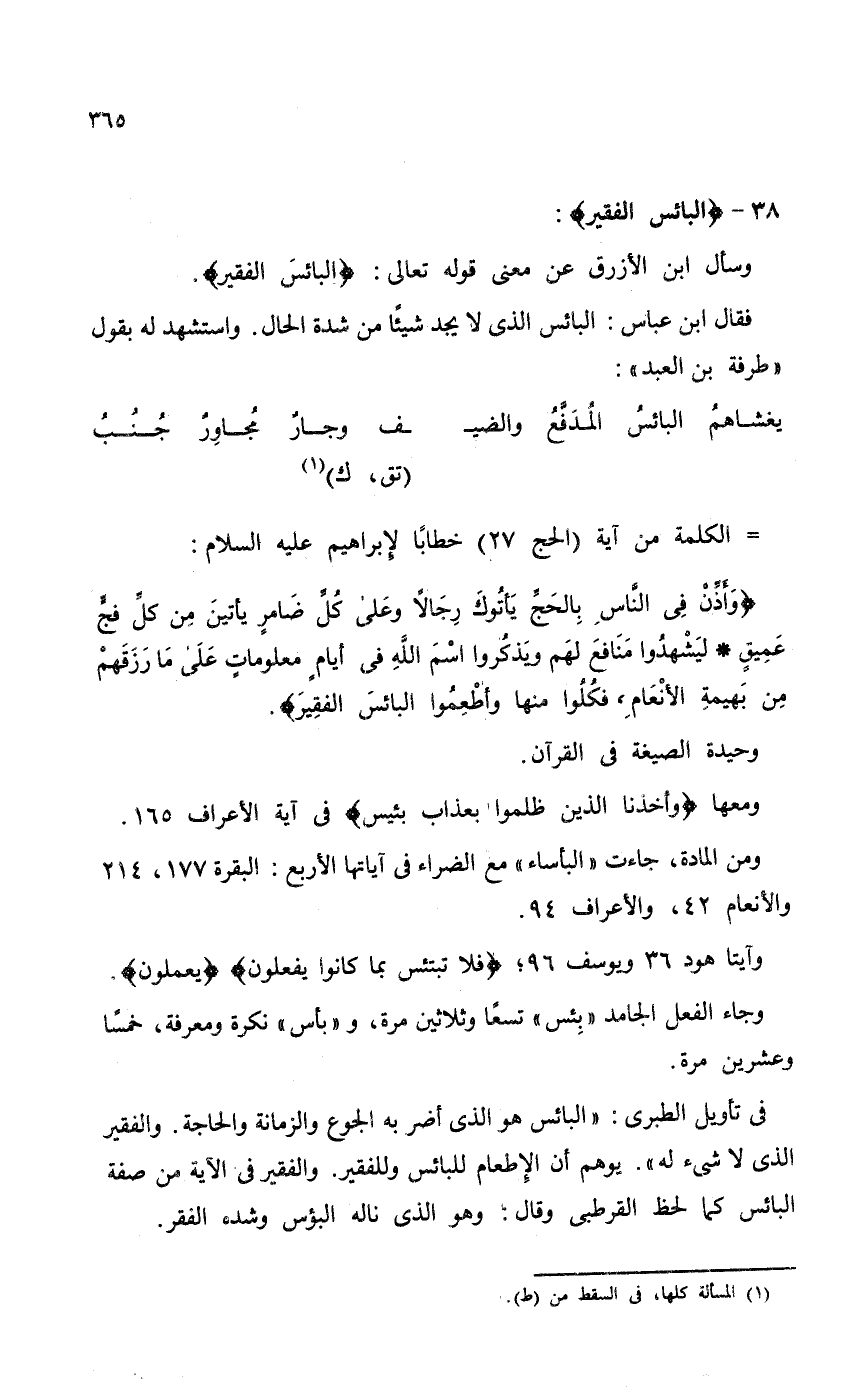 ٣٦٥
٣٨ - ﴿البائس الفقير﴾ :
وسأل ابن الأزرق عن معنى قوله تعالى : ﴿البائسَ الفقير﴾ .
فقال ابن عباس : البائس الذى لا يجد شيئًا من شدة الحال . واستشهد له بقول
«طرفة بن العبد» :
يغشـاهمُ البائسُ المُدَفَّعُ والضيـ ـف وجـارٌ مُجـاوِرٌ جُـنُـبُ
(تق، ك)(١)
= الكلمة من آية (الحج ٢٧) خطابًا لإبراهيم عليه السلام :
﴿وَأَذِّنْ فِى النَّاسِ بِالحَجِّ يَأتُوكَ رِجَالًا وعَلىٰ كُلِّ ضَامرٍ يأتينَ مِن كلِّ فجٍّ
عَمِيقٍ * لِيَشْهدُوا مَنَافعَ لهَم ويَذكُروا اسْمَ اللَّهِ فى أيامٍ معلوماتٍ عَلَىٰ مَا رَزَقَهمْ
مِن بَهيمةِ الأنْعَامِ، فكُلُوا منها وأطْعِمُوا البائسَ الفقِيرَ﴾ .
وحيدة الصيغة فى القرآن .
ومعها ﴿وأخذنا الذين ظلموا بعذاب بئيس﴾ فى آية الأعراف ١٦٥ .
ومن المادة، جاءت «البأساء» مع الضراء فى آياتها الأربع : البقرة ١٧٧، ٢١٤
والأنعام ٤٢، والأعراف ٩٤ .
وآيتا هود ٣٦ ويوسف ٩٦؛ ﴿فلا تبتئس بما كانوا يفعلون﴾ ﴿يعملون﴾ .
وجاء الفعل الجامد «بِئس» تسعًا وثلاثين مرة، و «بأس» نكرة ومعرفة، خمسًا
وعشرين مرة .
فى تأويل الطبرى : «البائس هو الذى أضر به الجوع والزمانة والحاجة . والفقير
الذى لا شىء له» . يوهم أن الإطعام للبائس وللفقير . والفقير فى الآية من صفة
البائس كما لحظ القرطبى وقال : وهو الذى ناله البؤس وشده الفقر .
(١) المسألة كلها، فى السقط من (ط) .